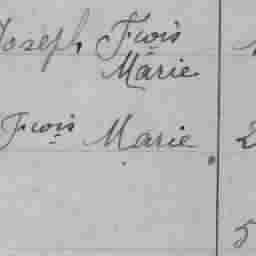 Joseph Fcois
Marie
Fcois Marie
2
5